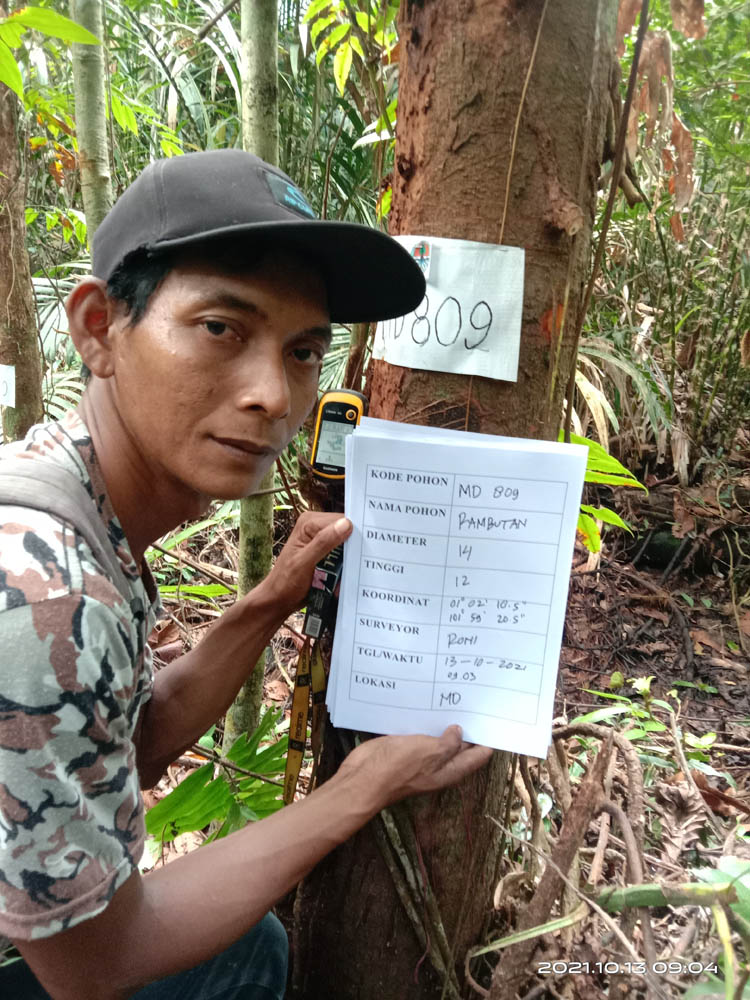 MD 809
KODE POHON MD 809
NAMA POHON RAMBUTAN
DIAMETER 14
TINGGI 12
KOORDINAT 01° 02' 10.5"
101° 59' 20.5"
SURVEYOR RONI
TGL/WAKTU 13-10-2021
09.03
LOKASI MD
2021.10.13 09:04